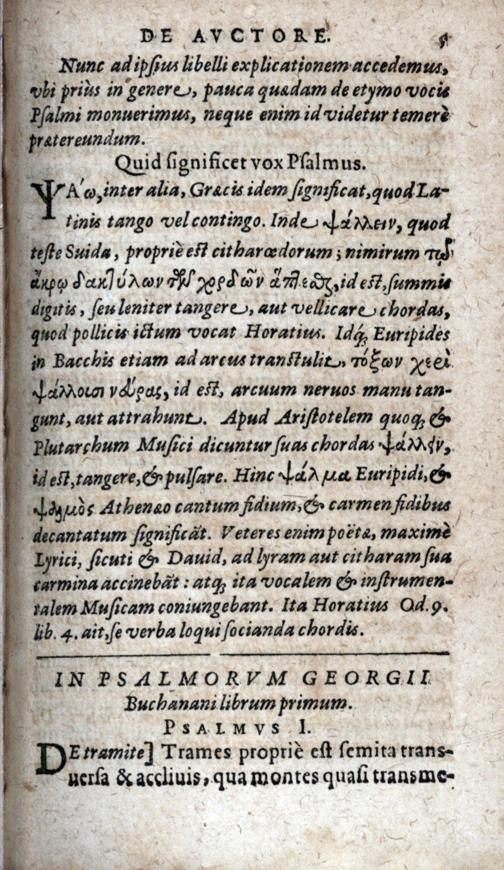 DE AVCTORE.
Nunc ad ipsius libelli explicationem accedemus,
vbi priùs in genere, pauca quædam de etymo vocis
Psalmi monuerimus, neque enim id videtur temerè
prætereundum.
Quid significet vox Psalmus.
ΨΑ´ω, inter alia, Græcis idem significat, quod La-
tinis tango vel contingo. Inde ψάλλειν, quod
teste Suida, propriè est citharœdorum; nimirum τῷ
ἄκρῳ δακτύλων τῶν χορδῶν ἅπτεσθαι, id est, summis
digitis, seu leniter tangere, aut vellicare chordas,
quod pollicis ictum vocat Horatius. Idq; Euripides
in Bacchis etiam ad arcus transtulit, τόξων χερὶ
ψάλλουσι νευρας, id est, arcuum neruos manu tan-
gunt, aut attrahunt. Apud Aristotelem quoq; &
Plutarchum Musici dicuntur suas chordas ψάλλειν,
id est, tangere, & pulsare. Hinc ψάλμα Euripidi, &
ψαλμὸς Athenæo cantum fidium, & carmen fidibus
decantatum significāt. Veteres enim poëtæ, maximè
Lyrici, sicuti & Dauid, ad lyram aut citharam sua
carmina accinebāt: atq; ita vocalem & instrumen-
talem Musicam coniungebant. Ita Horatius Od. 9.
lib. 4. ait, se verba loqui socianda chordis.
IN PSALMORVM GEORGII
Buchanani librum primum.
PSALMVS I.
DE tramite] Trames propriè est semita trans-
uersa & accliuis, qua montes quasi transme-